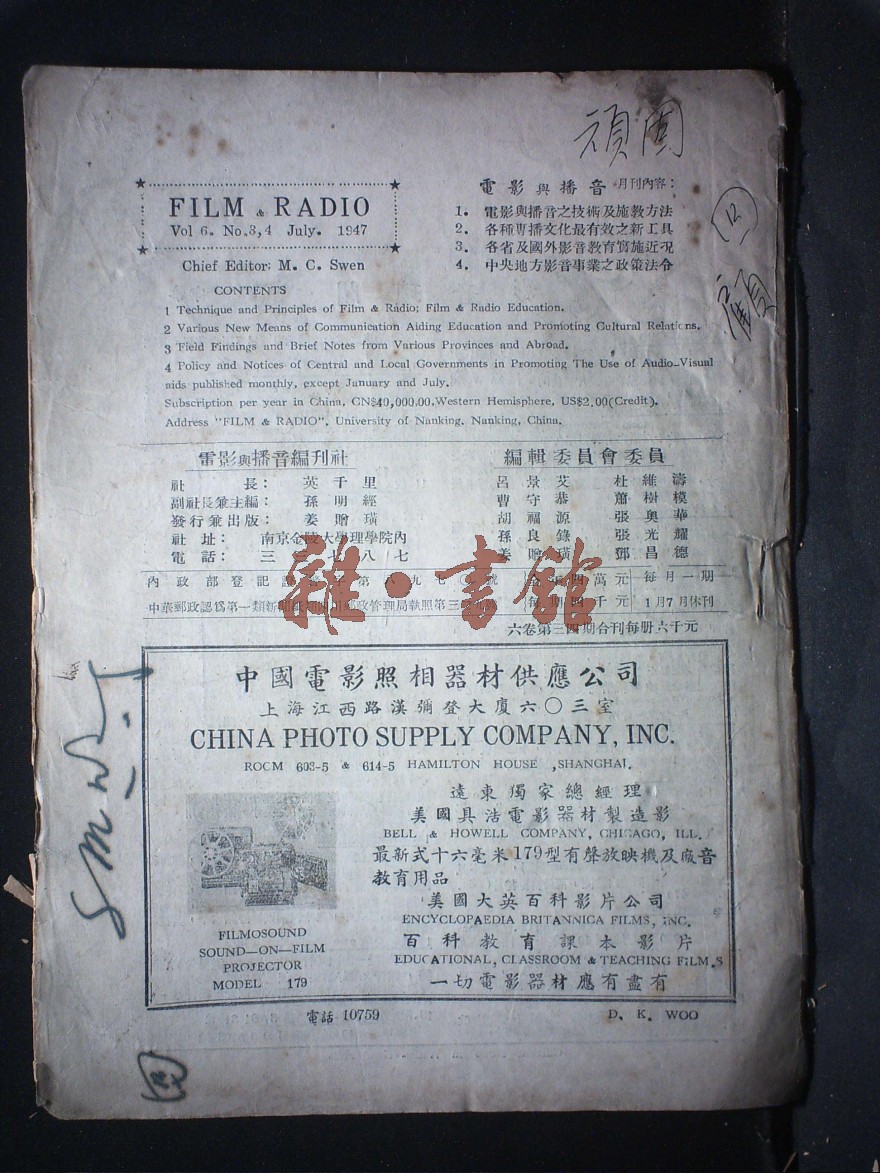 頑固
FILM & RADIO
Vol 6. No.3,4 July. 1947
Chief Editor: M. C. Swen
電影與播音 月刊內容：
1. 電影與播音之技術及施教方法
2. 各種専播文化最有效之新工具
3. 各省及國外影音教育實施近况
4. 中央地方影音事業之政策法令
12
CONTENTS
1 Technique and Principles of Film & Radio; Film & Radio Education.
2 Various New Means of Communication Aiding Education and Promoting Cultural Relations.
3 Field Findings and Brief Notes from Various Provinces and Abroad.
4 Policy and Notices of Central and Local Governments in Promoting The Use of Audio-Visual
aids published monthly, except January and July.
Subscription per year in China, CN$40,000.00.Western Hemisphere, US$2.00(Credit).
Address "FILM & RADIO", University of Nanking, Nanking, China.
電影與播音編刊社
社長： 英千里
副社長兼主編： 孫明經
發行兼出版： 姜贈璜
社址： 南京金陵大學理學院內
電話： 三三七八七
編輯委員會委員
呂景艾 杜維濤
曹守恭 蕭樹模
胡福源 張奧華
孫良錄 張光耀
姜贈璜 鄧昌德
內政部登記
全年四萬元 每月一期
中華郵政認爲第一類新聞紙類 郵政管理局執照第三
每期四千元 1月7月休刊
六卷第三四期合刊每册六千元
雜·書館
中國電影照相器材供應公司
上海江西路漢彌登大厦六〇三室
CHINA PHOTO SUPPLY COMPANY, INC.
ROOM 603-5 & 614-5 HAMILTON HOUSE ,SHANGHAI.
遠東獨家總經理
美國具浩電影器材製造影
BELL & HOWELL COMPANY, CHICAGO, ILL.
最新式十六毫米179型有聲放映機及廠音
教育用品
美國大英百科影片公司
ENCYCLOPAEDIA BRITANNICA FILMS, INC.
百科教育課本影片
EDUCATIONAL, CLASSROOM & TEACHING FILM,S
一切電影器材應有盡有
FILMOSOUND
SOUND—ON—FILM
PROJECTOR
MODEL 179
電話 10759
D. K. WOO